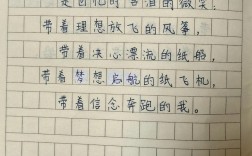 是回忆的苦涩的微笑，
带着理想放飞的风筝，
带着决心漂流的纸船，
带着梦想启航的纸飞机，
带着信念奔跑的我。